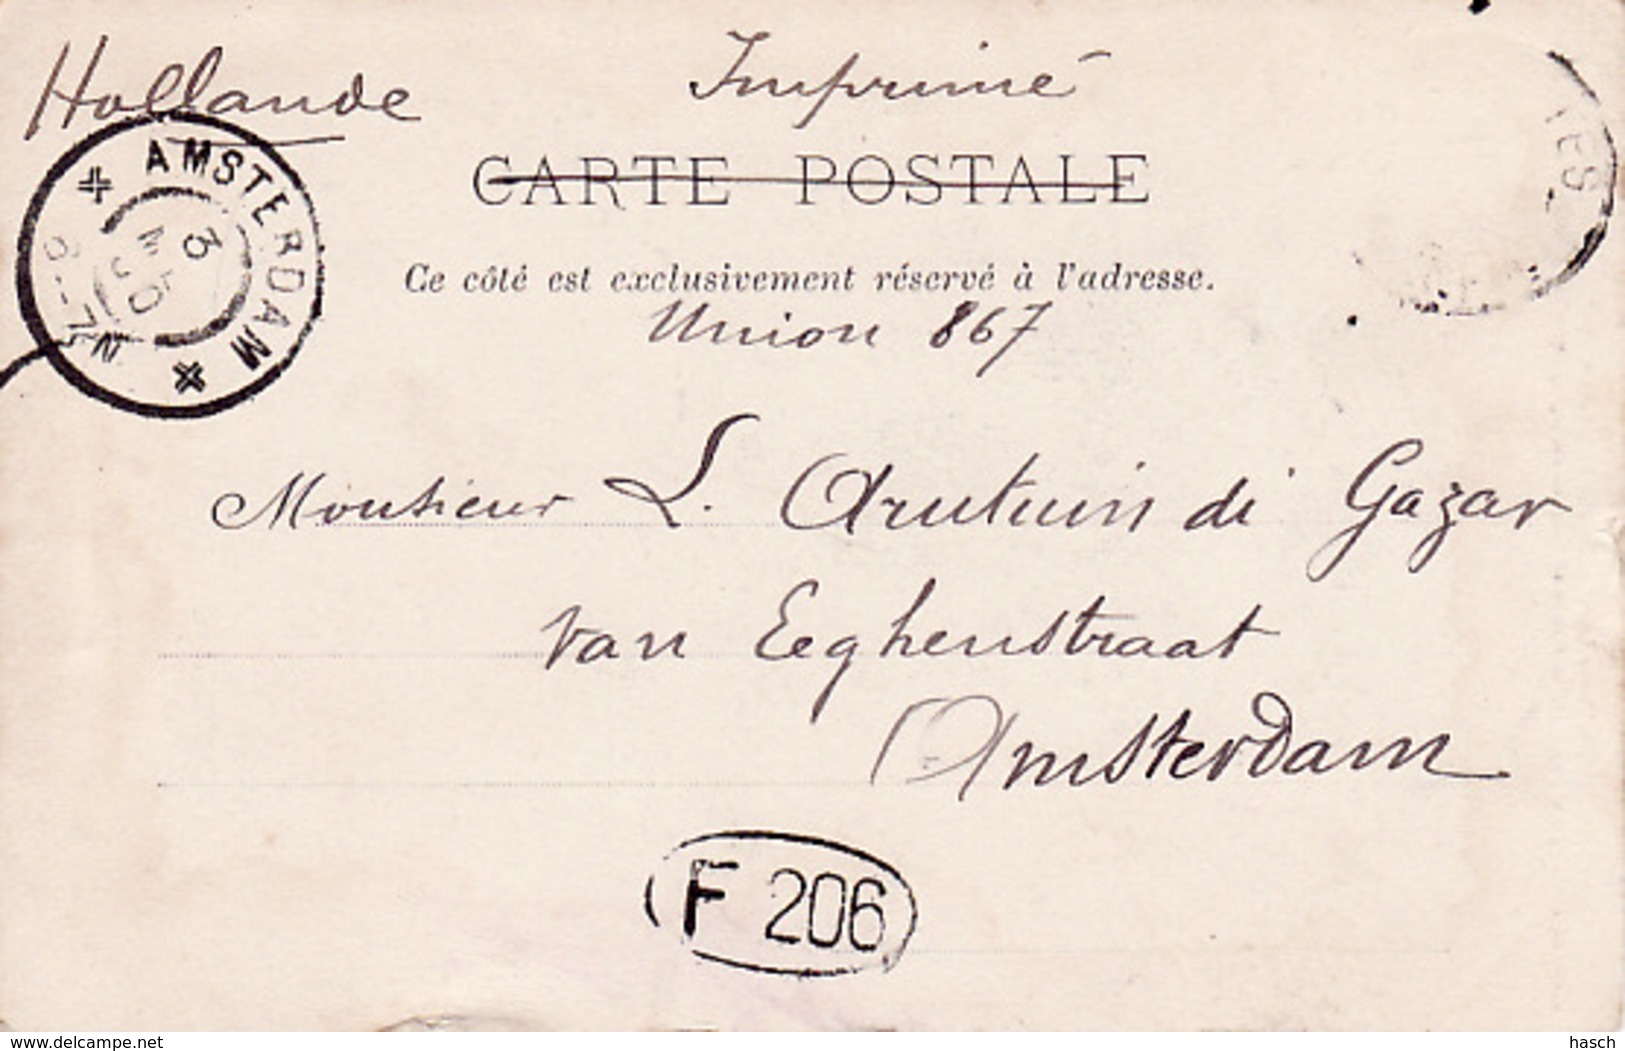 Hollande
Imprimé
CARTE POSTALE
Ce côté est exclusivement réservé à l'adresse.
Union 867
AMSTERDAM
3
Monsieur L. Arutuin di Gazar
van Eeghenstraat
Amsterdam
F 206
www.delcampe.net
hasch